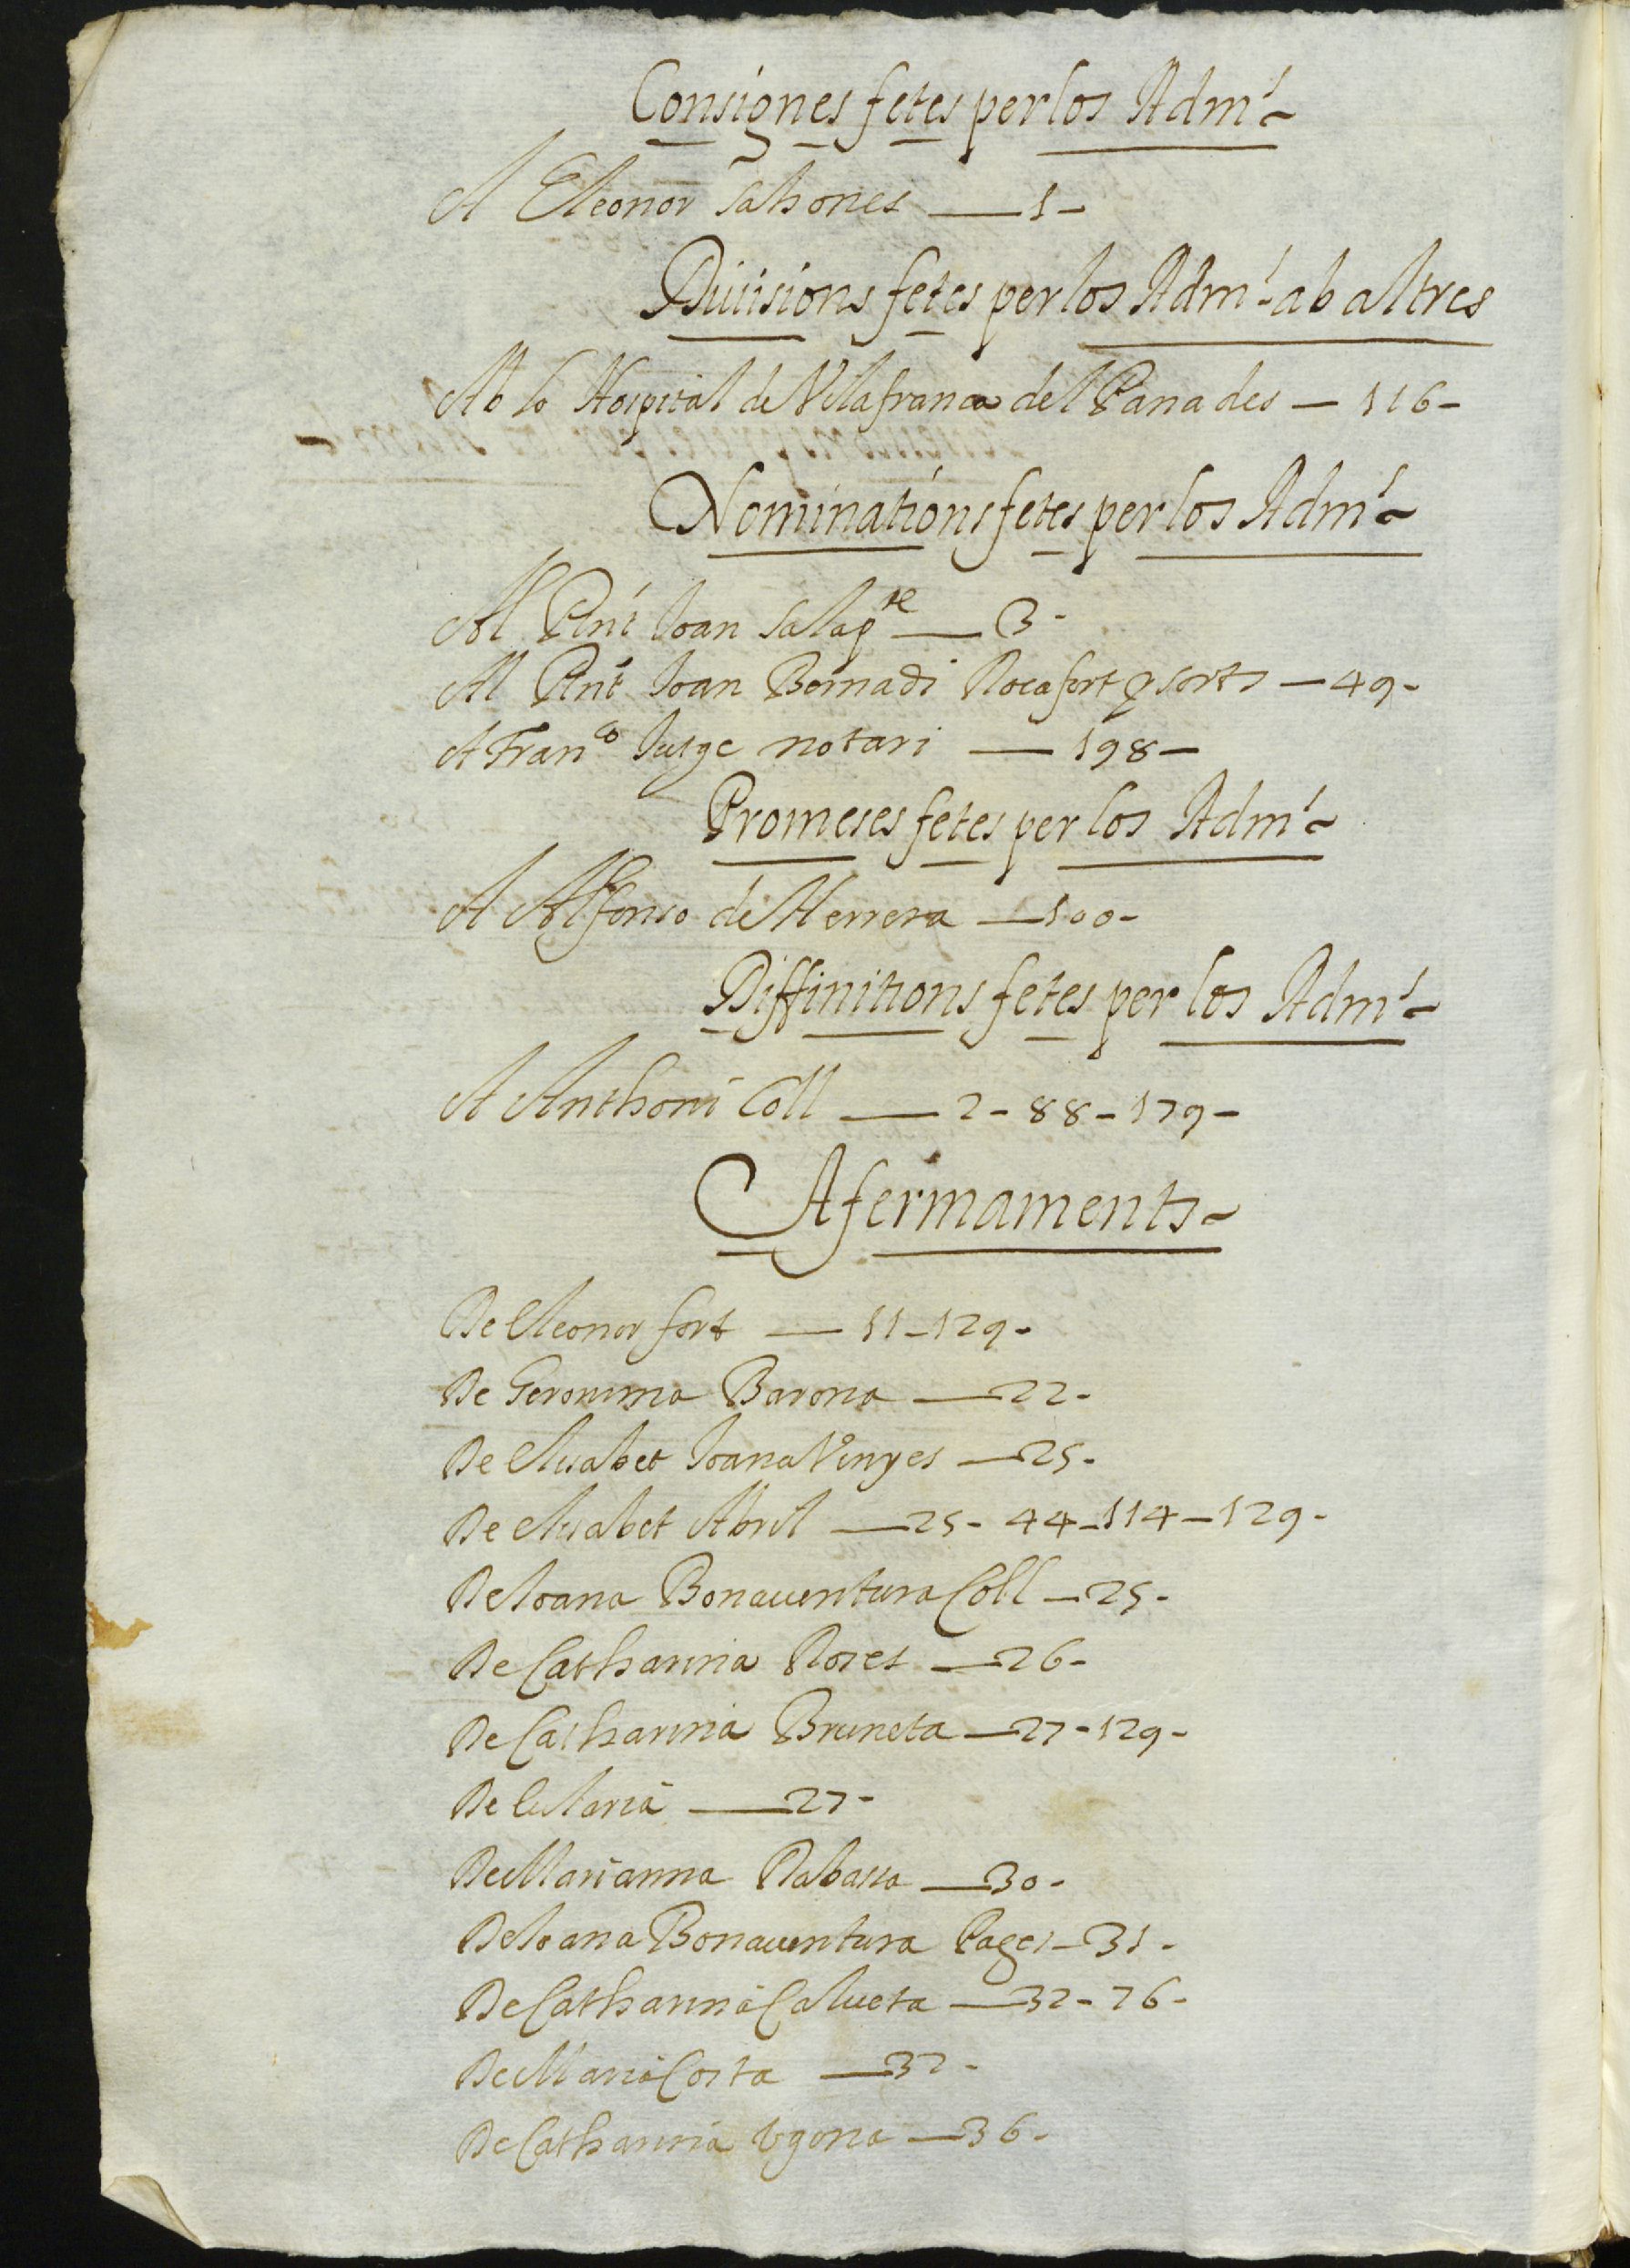 Consignes fetes per los Adm.
A Eleonor Sahones — 1 -
Diuisions fetes per los Adm. ab altres
Ab lo Hospital de Vilafranca del Panades — 116 -
Nominations fetes per los Adm.
Al Rnt Joan Sala pre — 3 -
Al Rnt Joan Bernadi Rocafort — 49 -
A Franco Jutge notari — 198 —
Promeses fetes per los Adm.
A Alfonso de Herrera — 100 -
Diffinitions fetes per los Adm.
A Anthoni Coll — 2 - 88 - 179 -
Afermaments
De Eleonor fort — 11 - 129 -
De Geronima Barona — 22 -
De Elisabet Joana Vinyes — 25 -
De Elisabet Abril — 25 - 44 - 114 - 129 -
De Joana Bonauentura Coll — 25 -
De Catharina Roses — 26 -
De Catharina Bruneta — 27 - 129 -
De Maria — 27 -
De Marianna Rabassa — 30 -
De Joana Bonauentura Pages — 31 -
De Catharina Calueta — 32 - 76 -
De Maria Costa — 32 -
De Catharina Vgona — 36 -